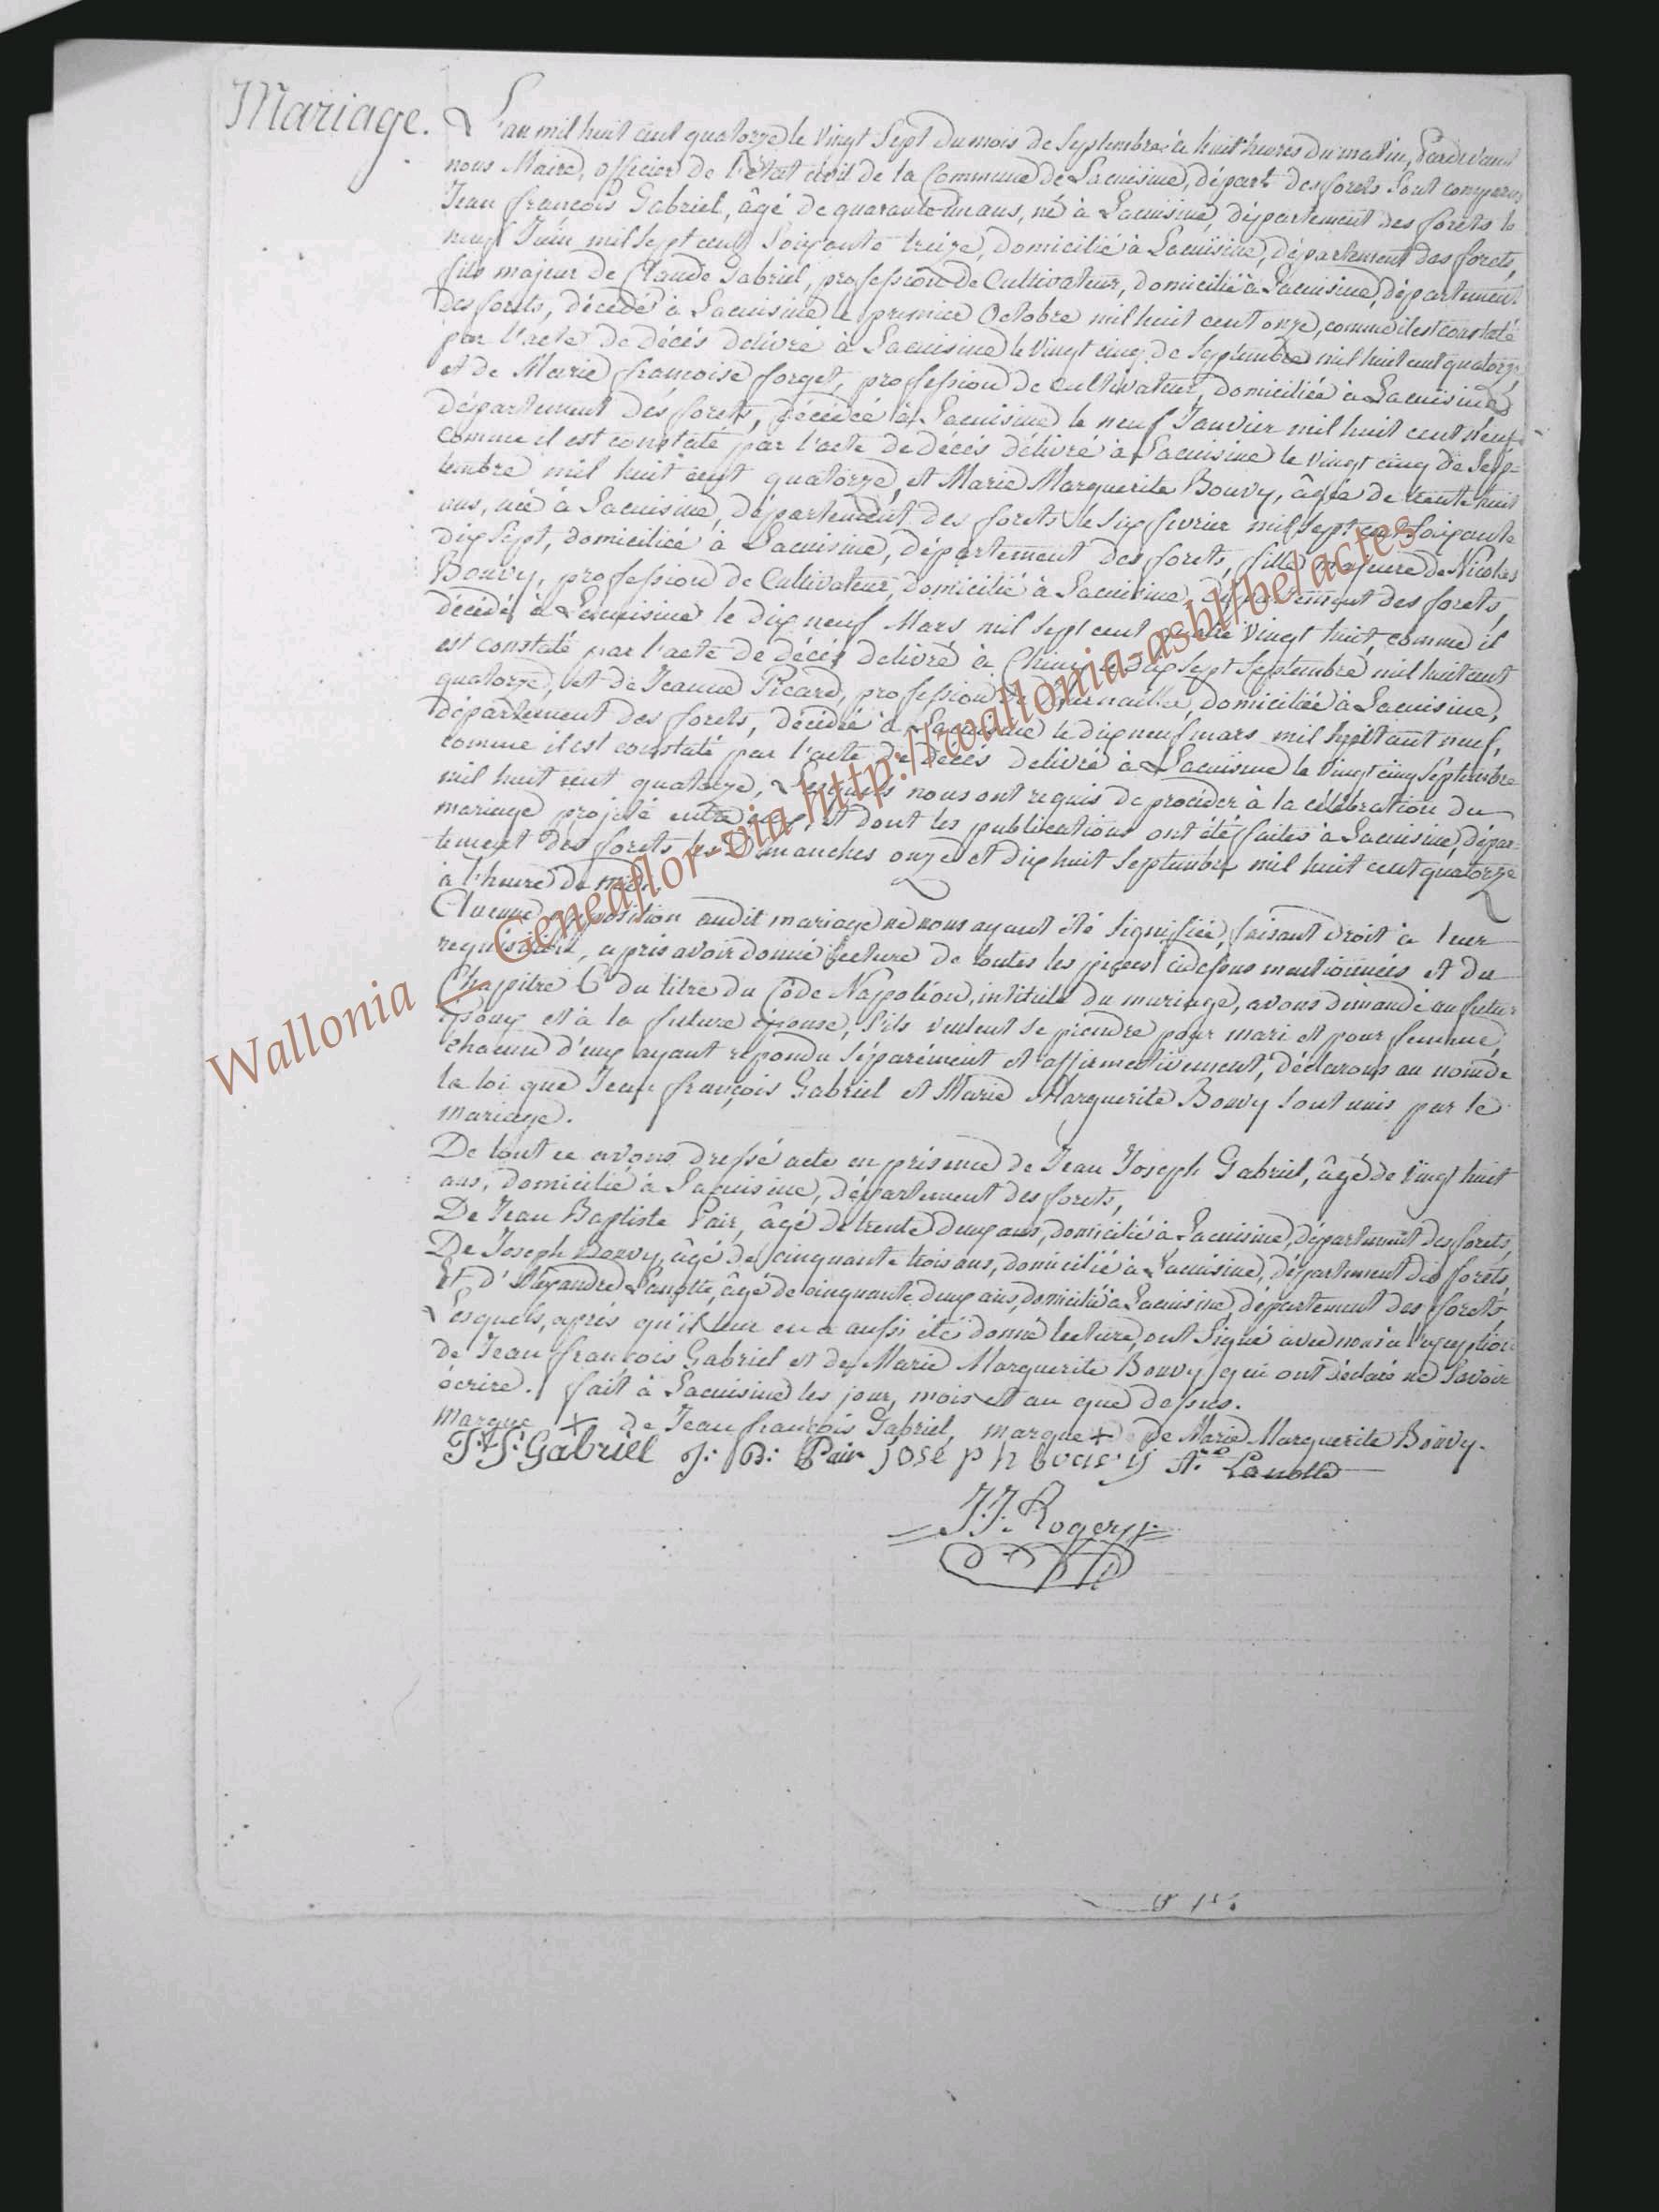 Mariage.
L'an mil huit cent quatorze le vingt Sept du mois de Septembre à huit heures du matin, Pardevant
nous Maire, officier de l'état civil de la Commune de Lacuisine, départ. des forets sont comparus
Jean françois Gabriel, âgé de quarante un ans, né à Lacuisine, département des forets le
neuf Juin mil sept cent soixante treize, domicilié à Lacuisine, département des forets,
fils majeur de Claude Gabriel, profession de Cultivateur, domicilié à Lacuisine, département
des forets, décédé à Lacuisine le premier Octobre mil huit cent onze, comme il est constaté
par l'acte de décès délivré à Lacuisine le vingt cinq de Septembre mil huit cent quatorze,
et de Marie françoise forget, profession de cultivateur, domiciliée à Lacuisine
département des forets, décédée à Lacuisine le neuf Janvier mil huit cent neuf
comme il est constaté par l'acte de décès délivré à Lacuisine le vingt cinq de Sep-
tembre mil huit cent quatorze, et Marie Marguerite Bouvy, âgée de trente huit
ans, née à Lacuisine, département des forets le six fevrier mil sept cent soixante
dix sept, domiciliée à Lacuisine, département des forets, fille majeure de Nicolas
Bouvy, profession de Cultivateur, domicilié à Lacuisine, département des forets,
décédé à Lacuisine le dix neuf Mars mil sept cent quatre vingt huit, comme il
est constaté par l'acte de décès delivré à Chiny le dix sept Septembre mil huit cent
quatorze, et de Jeanne Picard, profession de domiciliée à Lacuisine,
département des forets, décédée à Lacuisine le dix neuf mars mil huit cent neuf,
comme il est constaté par l'acte de décès delivré à Lacuisine le vingt cinq Septembre
mil huit cent quatorze, Lesquels nous ont requis de procéder à la célébration du
mariage projeté entre eux, et dont les publications ont été faites à Lacuisine, dépar-
tement des forets les Dimanches onze et dix huit Septembre mil huit cent quatorze
à l'heure de midi.
Aucune opposition audit mariage ne nous ayant été signifiée, faisant droit à leur
requisition, après avoir donné lecture de toutes les pièces cidessus mentionnées et du
Chapitre 6 du titre du Côde Napoléon, intitulé du mariage, avons demandé au futur
époux et à la future épouse, s'ils veulent se prendre pour mari et pour femme,
chacun d'eux ayant répondu séparément et affirmativement, déclarons au nom de
la loi que Jean françois Gabriel et Marie Marguerite Bouvy sont unis par le
mariage.
De tout ce avons dressé acte en présence de Jean Joseph Gabriel, âgé de vingt huit
ans, domicilié à Lacuisine, département des forets,
De Jean Baptiste Pair, âgé de trente deux ans, domicilié à Lacuisine, département des forets,
De Joseph Bouvy, âgé de cinquante trois ans, domicilié à Lacuisine, département des forets,
Et d'Alexandre Lanotte, âgé de cinquante deux ans, domicilié à Lacuisine, département des forets,
Lesquels, après qu'il leur en a aussi été donné lecture, ont signé avec nous à l'exception
de Jean françois Gabriel et de Marie Marguerite Bouvy qui ont déclaré ne savoir
écrire. fait à Lacuisine les jour, mois et an que dessus.
marque + de Jean françois Gabriel, marque + de Marie Marguerite Bouvy.
J:J: Gabriel J: B: Pair joseph bouvy Lanotte
J.J. Rogery
Wallonia - Geneaflor via http://wallonia-asbl/be/actes